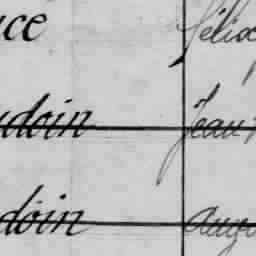 ice félix
udoin Jean
doin Aug